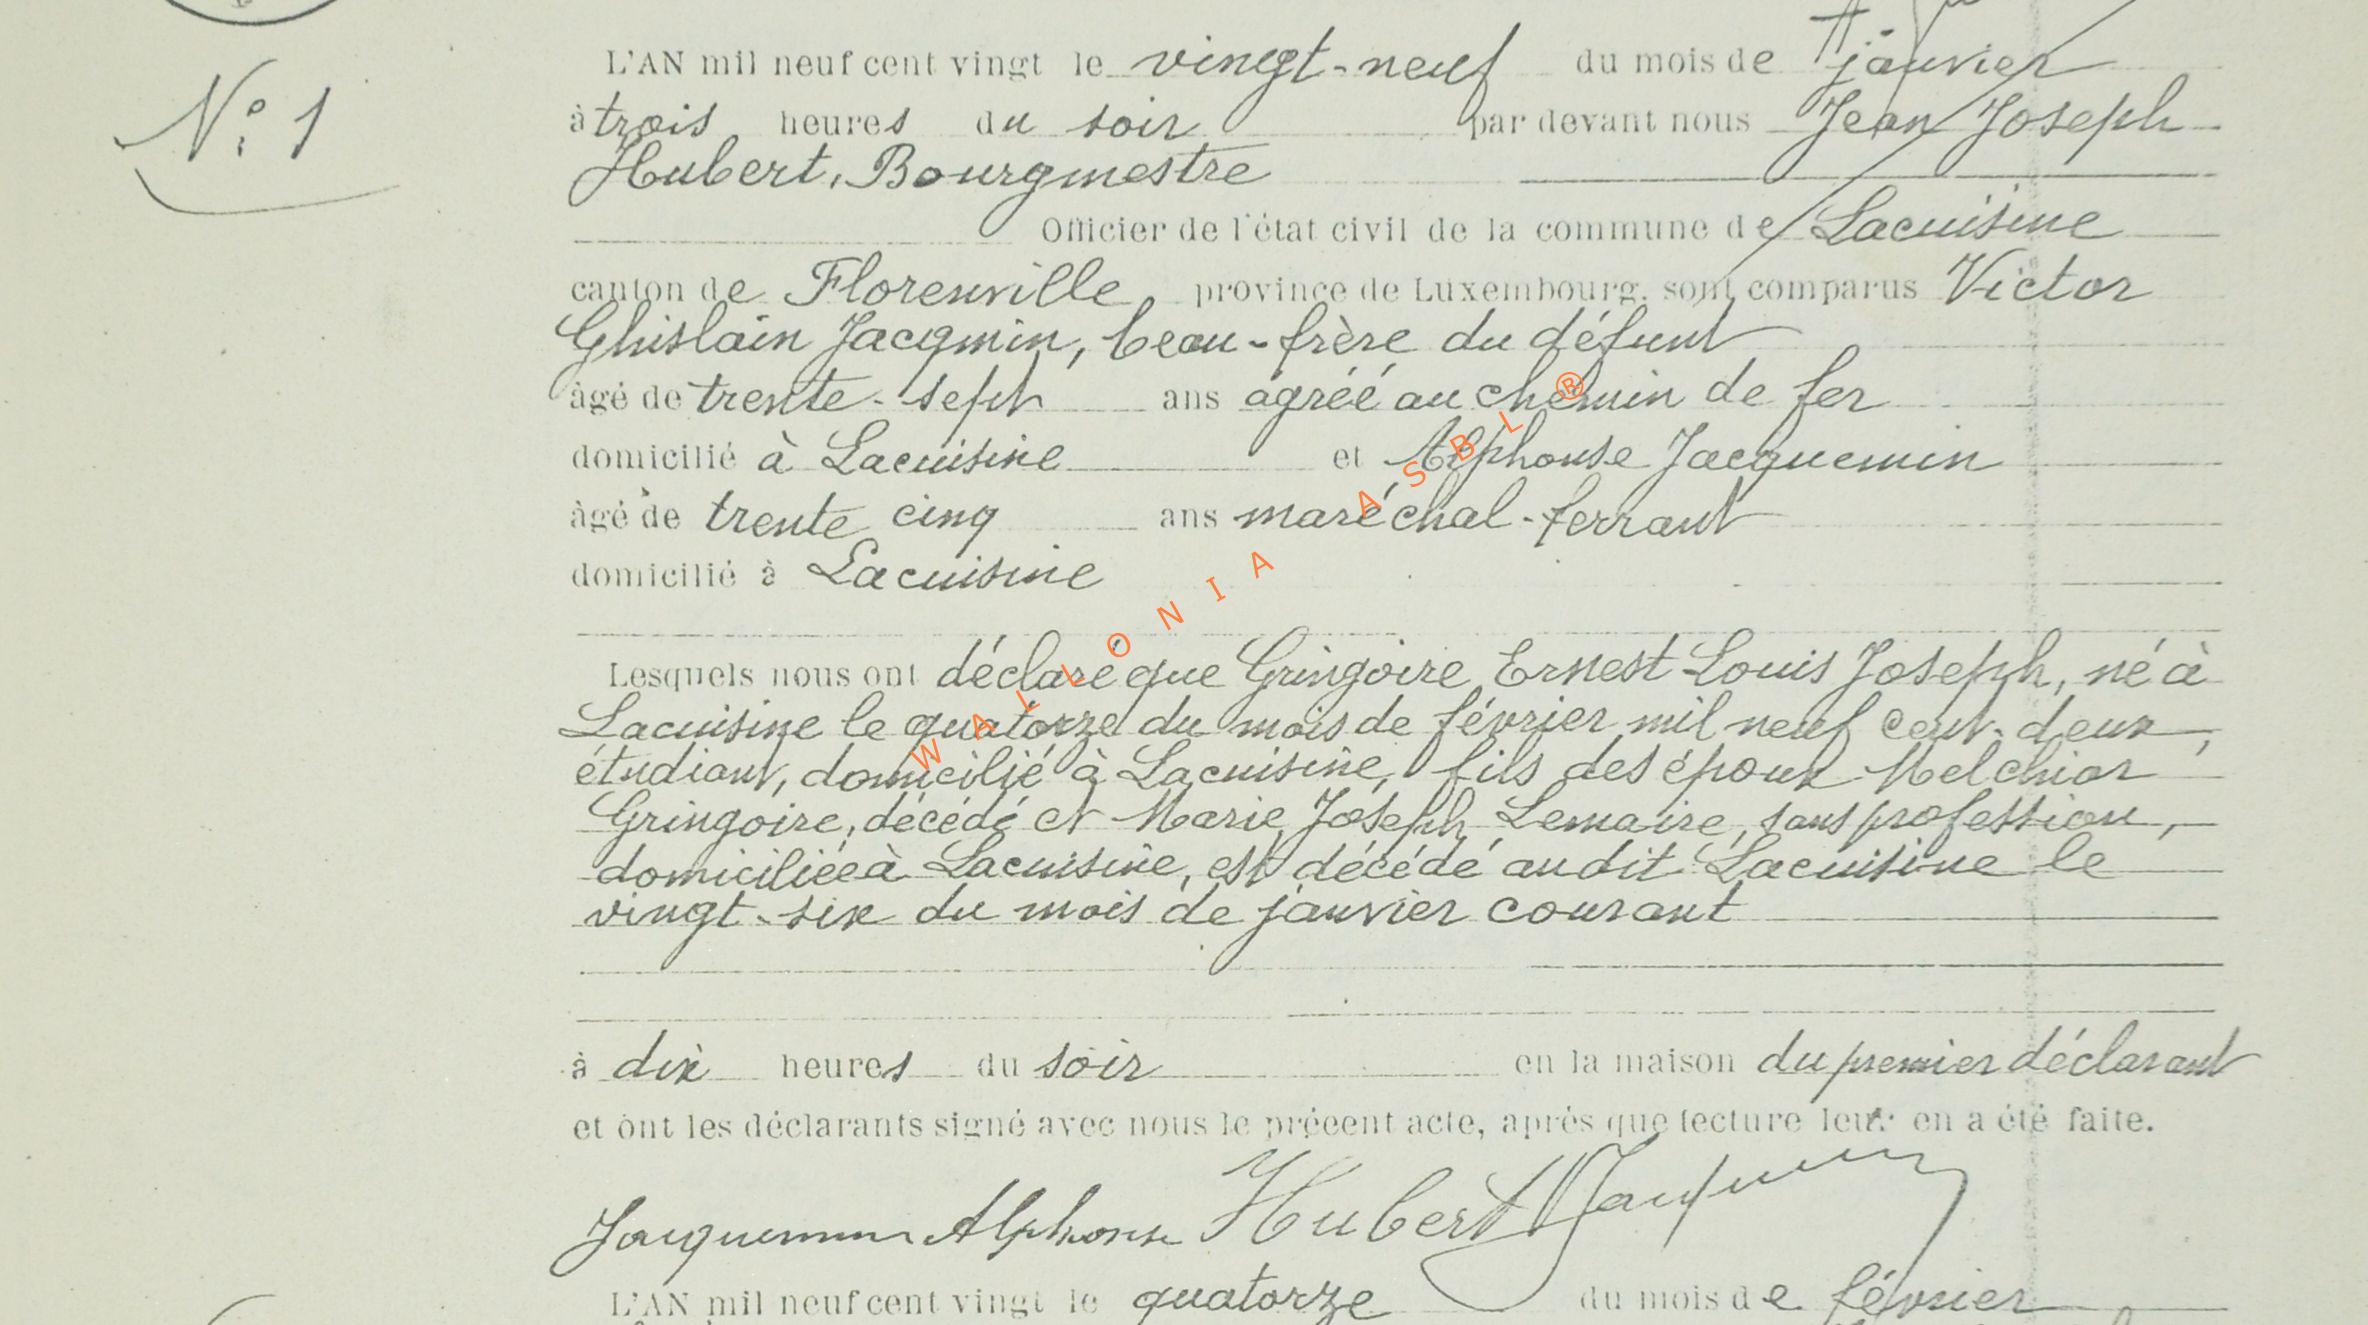 N° 1
L'AN mil neuf cent vingt le vingt-neuf du mois de janvier
à trois heures du soir par devant nous Jean Joseph
Hubert, Bourgmestre
Officier de l'état civil de la commune de Lacuisine
canton de Florenville, province de Luxembourg, sont comparus Victor
Ghislain Jacqmin, beau-frère du défunt
âgé de trente-sept ans agréé au chemin de fer
domicilié à Lacuisine et Alphonse Jacquemin
âgé de trente cinq ans maréchal-ferrant
domicilié à Lacuisine
Lesquels nous ont déclaré que Gringoire Ernest Louis Joseph, né à
Lacuisine le quatorze du mois de février mil neuf cent-deux,
étudiant, domicilié à Lacuisine, fils des époux Melchior
Gringoire, décédé et Marie Joseph Lemaire, sans profession,
domiciliée à Lacuisine, est décédé audit Lacuisine le
vingt-six du mois de janvier courant
à dix heures du soir en la maison du premier déclarant
et ont les déclarants signé avec nous le précent acte, après que lecture leur en a été faite.
Jacquemin Alphonse Hubert Jacqmin
L'AN mil neuf cent vingt le quatorze du mois de février
WALLONIA ASBL ®